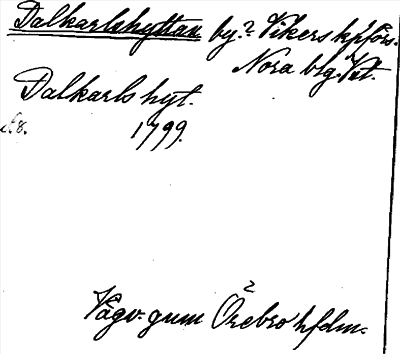 Dalkarlshyttan by? Vikers kpförs.
Nora brg. Vst.
Dalkarls hyt.
1799.
Vägv. gnm Örebro hfdm.